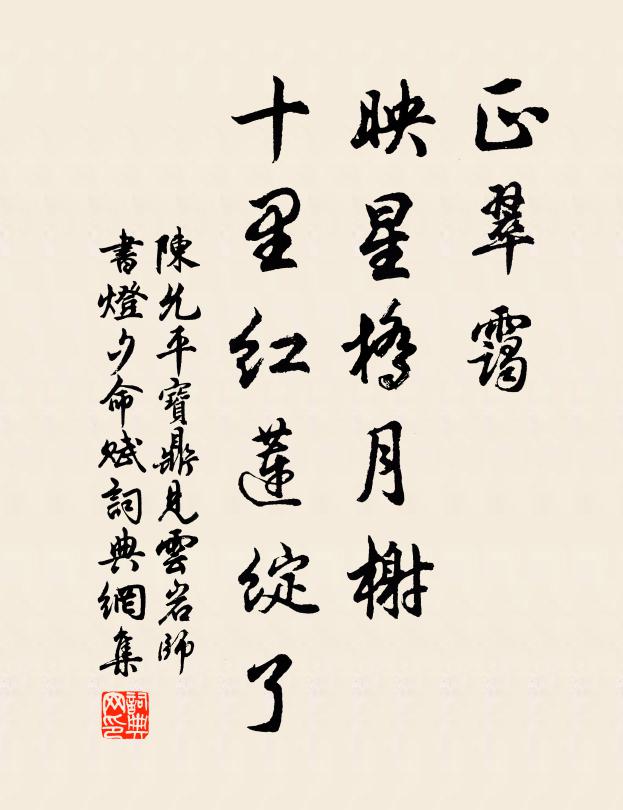 正翠靄
映星橋月榭
十里紅蓮綻了
陳允平寶鼎見雲岩師
書燈夕命賦詞典網集
詞典
网印